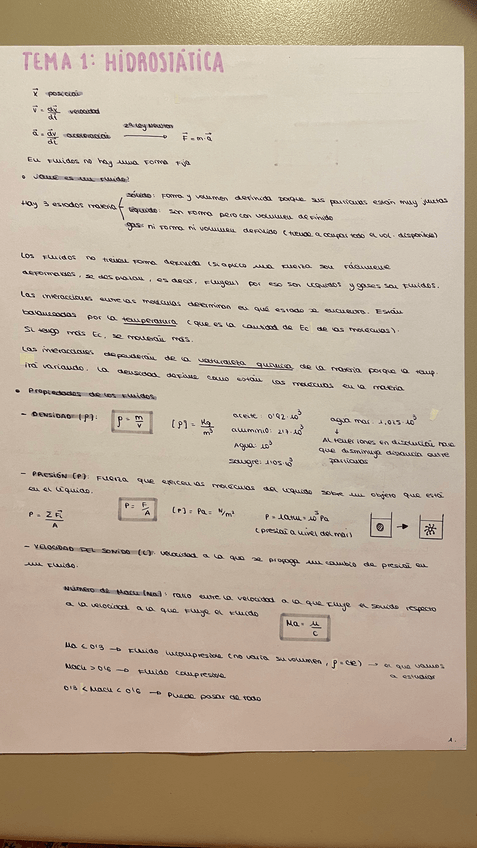 TEMA 1: HIDROSTÁTICA
x⃗ posición
v⃗ = dx⃗/dt velocidad
a⃗ = dv⃗/dt aceleración 2ª Ley Newton → F⃗ = m·a⃗
En Fluidos no hay una forma fija
• ¿Qué es un fluido?
Hay 3 estados materia
sólido: forma y volumen definida porque sus partículas están muy juntas
líquido: sin forma pero con volumen definido
gas: ni forma ni volumen definido (tiende a ocupar todo el vol. disponible)
Los fluidos no tienen forma definida (si aplico una fuerza son fácilmente
deformables, se desplazan, es decir, fluyen) por eso son líquidos y gases son fluidos.
Las interacciones entre las moléculas determinan en qué estado se encuentra. Están
balanceadas por la temperatura (que es la cantidad de Ec de las moléculas).
Si tengo más Ec, se moverán más.
Las interacciones dependerán de la naturaleza química de la materia porque la temp.
irá variando. La densidad define como están las moléculas en la materia
• Propiedades de los fluidos
- DENSIDAD (ρ): ρ = m/V [ρ] = Kg/m³
aceite: 0'92·10³
aluminio: 2'7·10³
Agua: 10³
sangre: 1'05·10³
agua mar: 1,025·10³
↓
Al tener iones en disolución hace
que disminuya distancia entre
partículas
- PRESIÓN (P): Fuerza que ejercen las moléculas del líquido sobre un objeto que está
en el líquido.
P = ΣFi/A P = F/A [P] = Pa = N/m² P = 1 atm = 10⁵ Pa
(presión a nivel del mar)
- VELOCIDAD DEL SONIDO (C): velocidad a la que se propaga un cambio de presión en
un fluido.
Número de Mach (Ma): ratio entre la velocidad a la que fluye el sonido respecto
a la velocidad a la que fluye el fluido
Ma = u/c
Ma < 0'3 → Fluido incompresible (no varía su volumen, ρ = cte) → el que vamos
a estudiar
Mach > 0'6 → Fluido compresible
0'3 < Mach < 0'6 → Puede pasar de todo
1.